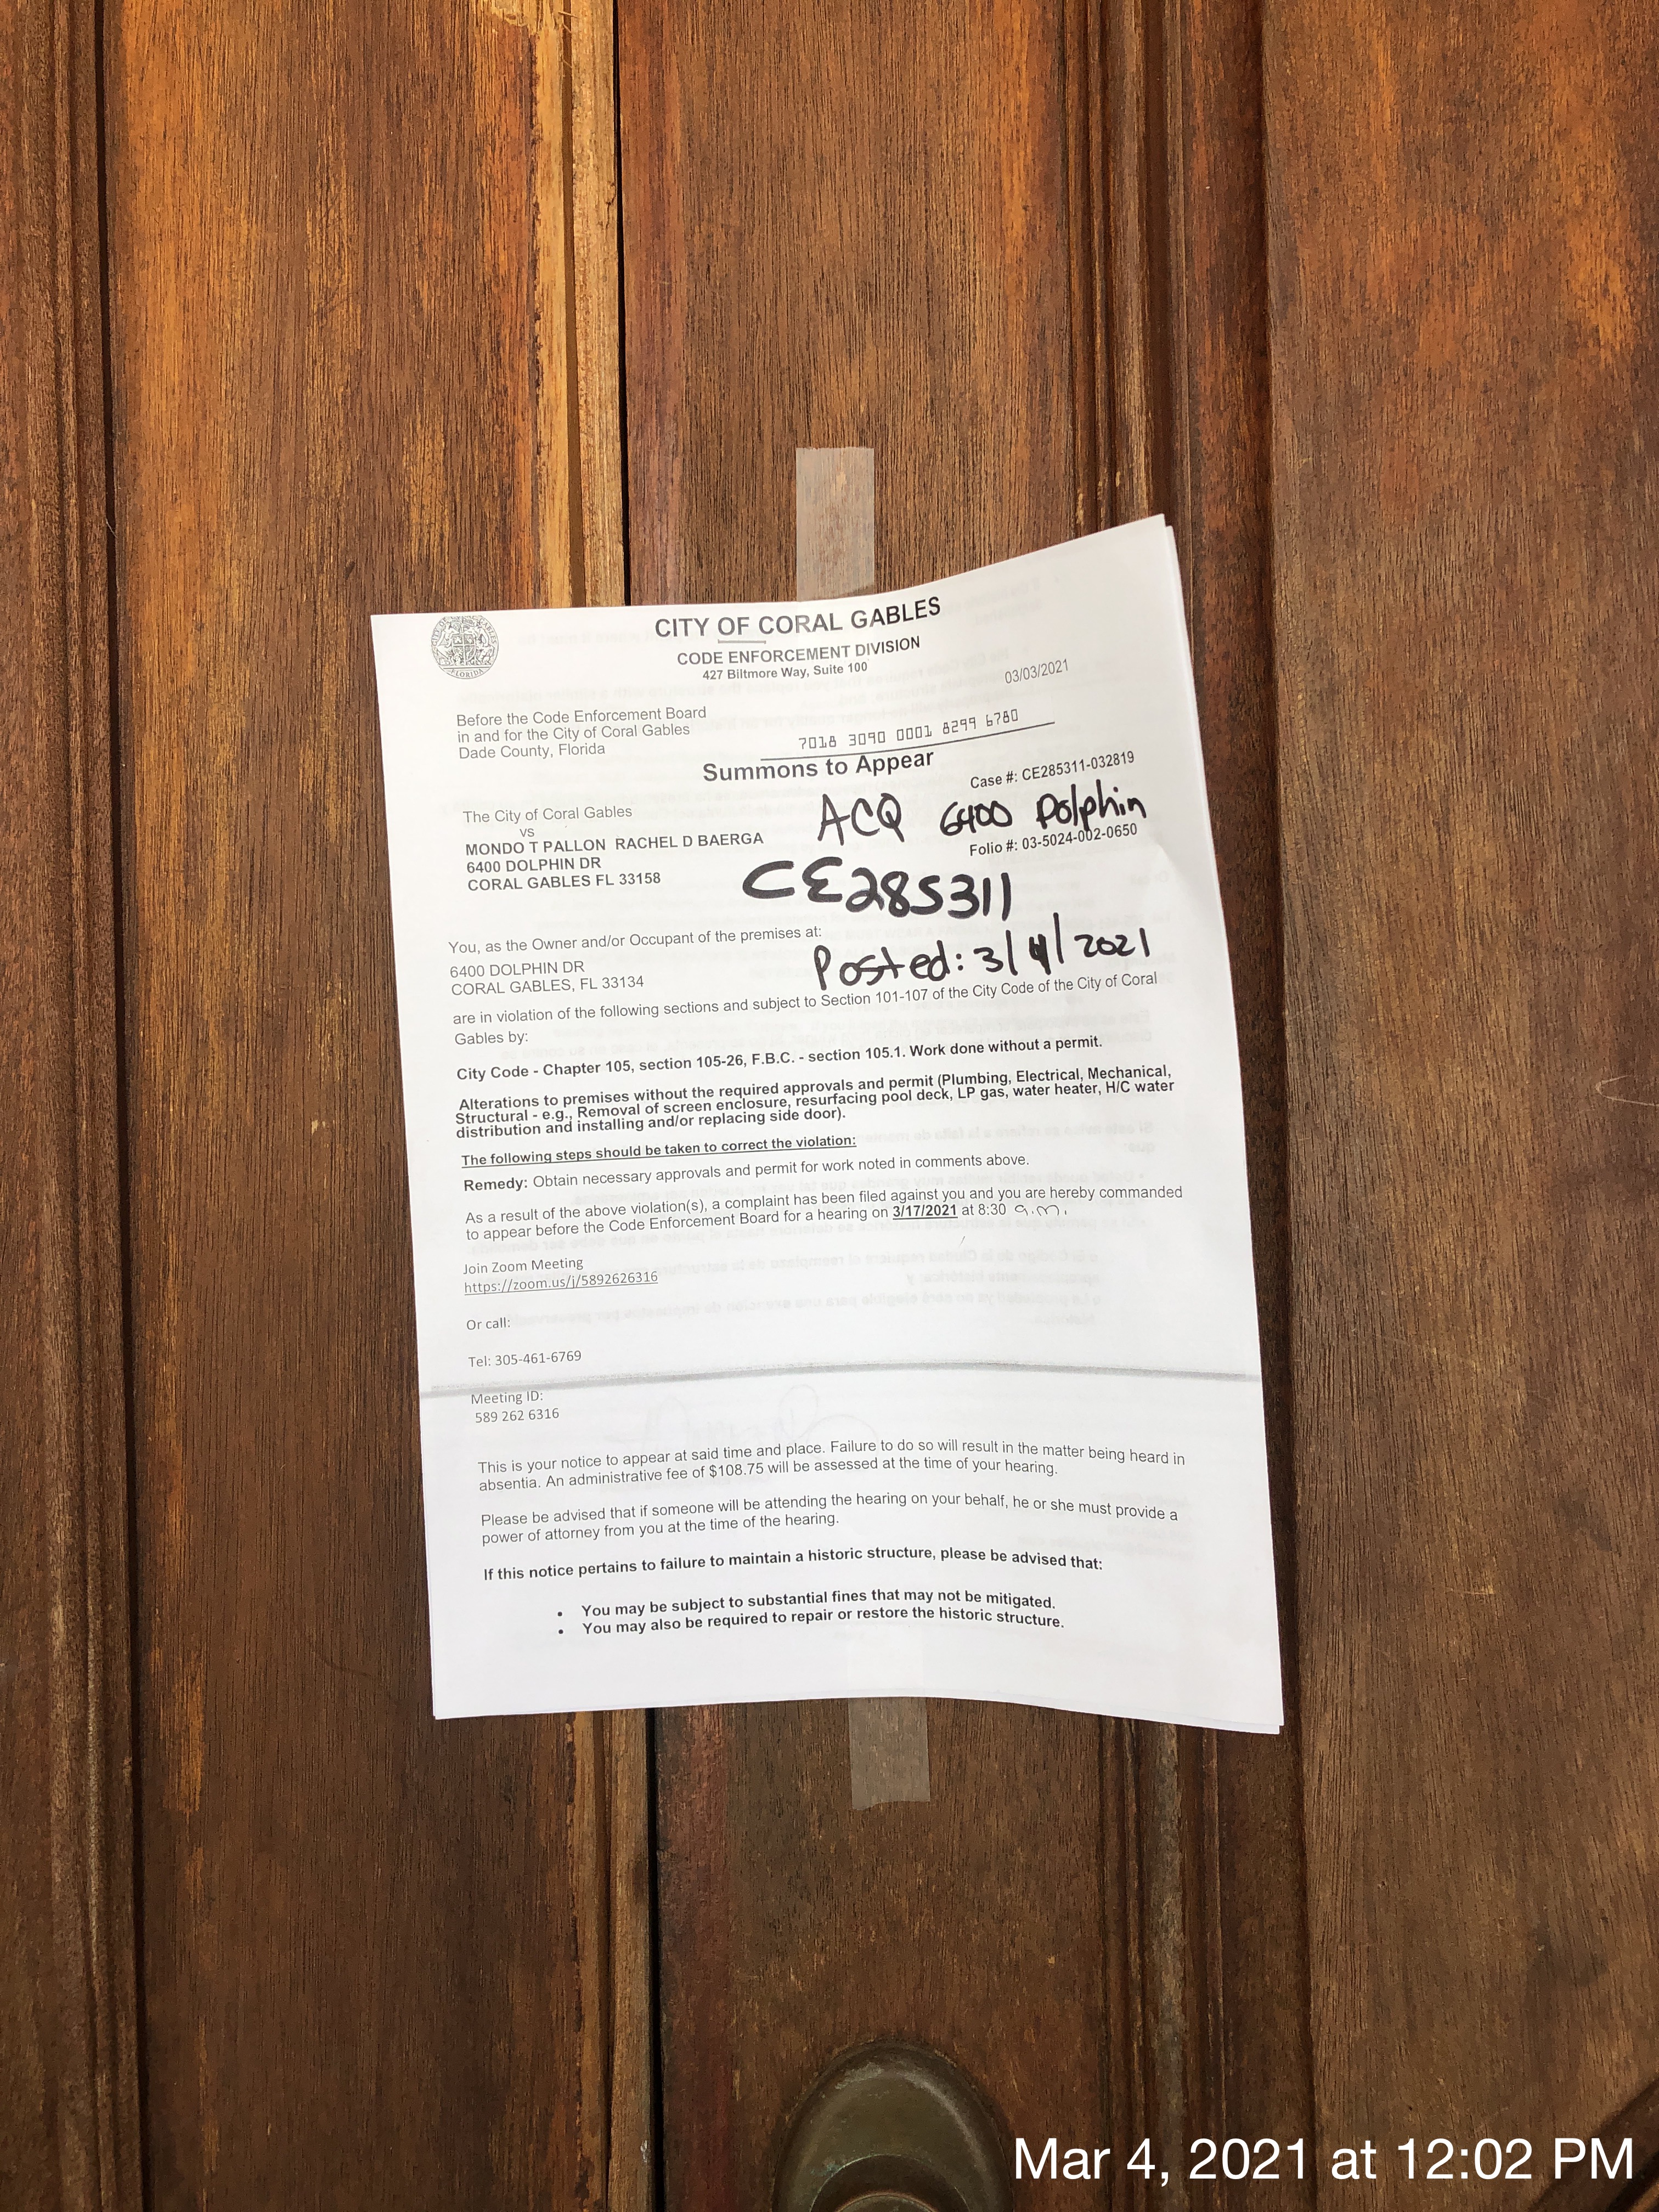 CITY OF CORAL GABLES
CODE ENFORCEMENT DIVISION
427 Biltmore Way, Suite 100
03/03/2021
Before the Code Enforcement Board
in and for the City of Coral Gables
Dade County, Florida
7018 3090 0001 8299 6780
Summons to Appear
Case #: CE285311-032819
The City of Coral Gables
vs
MONDO T PALLON RACHEL D BAERGA
6400 DOLPHIN DR
CORAL GABLES FL 33158
ACQ 6400 Dolphin
Folio #: 03-5024-002-0650
CE285311
You, as the Owner and/or Occupant of the premises at:
Posted: 3/4/2021
6400 DOLPHIN DR
CORAL GABLES, FL 33134
are in violation of the following sections and subject to Section 101-107 of the City Code of the City of Coral
Gables by:
City Code - Chapter 105, section 105-26, F.B.C. - section 105.1. Work done without a permit.
Alterations to premises without the required approvals and permit (Plumbing, Electrical, Mechanical,
Structural - e.g., Removal of screen enclosure, resurfacing pool deck, LP gas, water heater, H/C water
distribution and installing and/or replacing side door).
The following steps should be taken to correct the violation:
Remedy: Obtain necessary approvals and permit for work noted in comments above.
As a result of the above violation(s), a complaint has been filed against you and you are hereby commanded
to appear before the Code Enforcement Board for a hearing on 3/17/2021 at 8:30 a.m.
Join Zoom Meeting
https://zoom.us/j/5892626316
Or call:
Tel: 305-461-6769
Meeting ID:
589 262 6316
This is your notice to appear at said time and place. Failure to do so will result in the matter being heard in
absentia. An administrative fee of $108.75 will be assessed at the time of your hearing.
Please be advised that if someone will be attending the hearing on your behalf, he or she must provide a
power of attorney from you at the time of the hearing.
If this notice pertains to failure to maintain a historic structure, please be advised that:
• You may be subject to substantial fines that may not be mitigated.
• You may also be required to repair or restore the historic structure.
Mar 4, 2021 at 12:02 PM